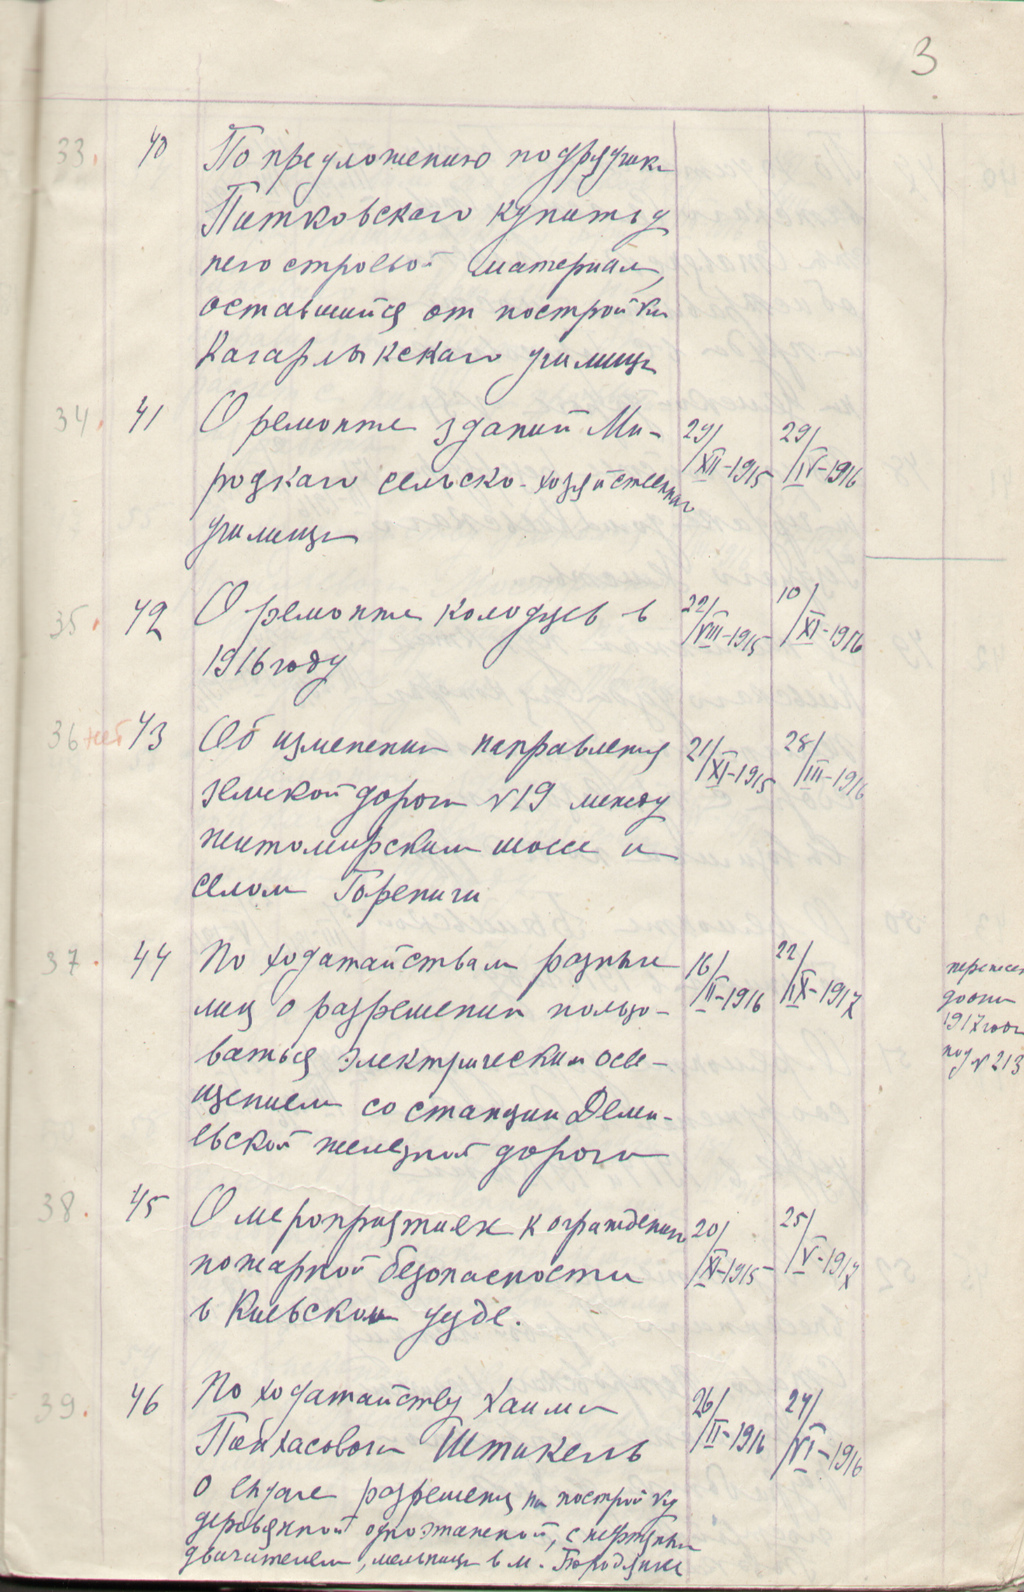 3
33. 40 По предложению подрядчика
Питковского купить у
него строевой материал,
оставшийся от постройки
Кагарлыкского училища
34. 41 О ремонте зданий Ми- 29/XII-1915 29/IV-1916
роцкаго сельско-хозяйственнаго
училища
35. 42 О ремонте колодцев в 22/VIII-1915 10/XI-1916
1916 году
36 нет 43 Об изменении направления 21/XI-1915 28/III-1916
земской дороги №19 между
житомирским шоссе и
селом Гореничи
37. 44 По ходатайствам разных 16/II-1916 22/IX-1917
лиц о разрешении пользо-
ваться электрическим осве-
щением со станции Деми-
евской железной дороги
перенесен
1917 года
под №213
38. 45 О мероприятиях к ограждению 20/XI-1915 25/V-1917
пожарной безопасности
в Киевском уезде.
39. 46 По ходатайству Хаима 26/II-1916 24/VI-1916
Пейхасовога Штикель
о выдаче разрешения на постройку
деревянной одноэтажной, с нефтяным
двигателем, мельницы в м. Бородянке